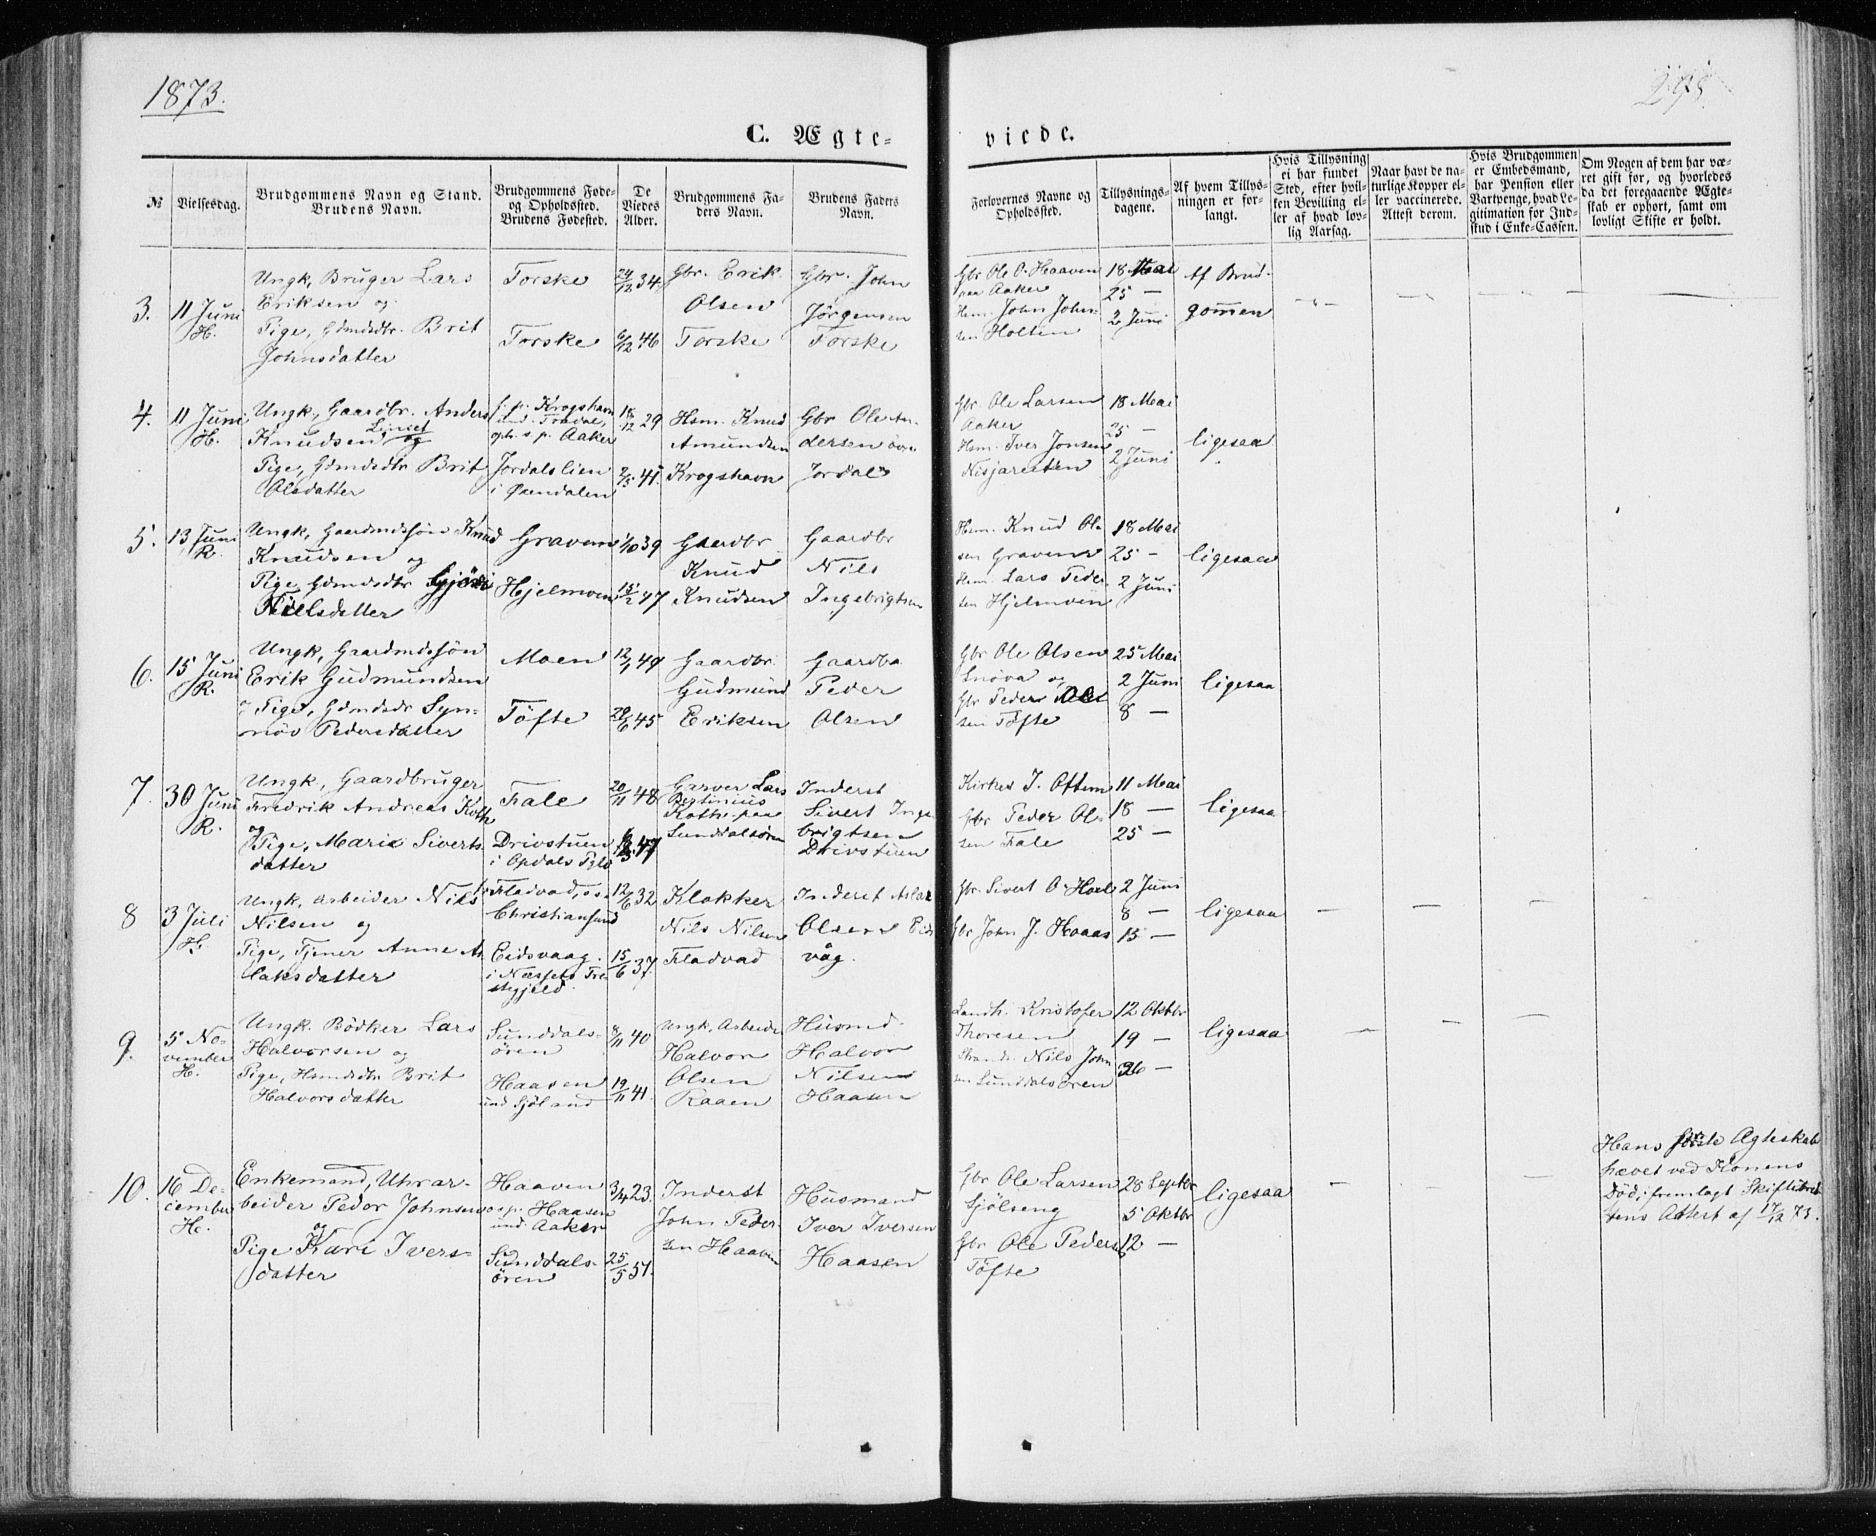 1873.
C. Ægte-
viede.
№
Vielsesdag.
Brudgommens Navn og Stand.
Brudens Navn.
Brudgommens Føde-
og Opholdssted.
Brudens Fødested.
De
Viedes
Alder.
Brudgommens Fa-
ders Navn.
Brudens Faders
Navn.
Forlovernes Navne og
Opholdssted.
Tillysnings-
dagene.
Af hvem Tillys-
ningen er for-
langt.
Hvis Tillysning
ei har fundet
Sted, efter hvil-
ken Bevilling el-
ler af hvad lov-
lig Aarsag.
Naar havt de na-
turlige Kopper el-
ler vaccinerede.
Attest derom.
Hvis Brudgommen
er Embedsmand,
har Pension eller
Vartpenge, hvad Le-
gitimation for Ind-
skud i Enke-Cassen.
Om Nogen af dem har væ-
ret gift for, og hvorledes
da det foregaaende Ægte-
skab er ophørt, samt om
lovligt Skifte er holdt.
3.
11 Juni
H.
Ungk, Bruger Lars
Eriksen og
Pige, Gdmdsdtr. Brit
Johnsdatter
Torske
Torske
24/12 34
6/12 46
Gbr. Erik
Olsen
Torske
Gbr. John
Jørgensen
Torske
Gbr Ole O. Haaven
paa Aaker
Hsm. John John-
sen Holten
18 Mai
25 —
2 Juni
Af Brud-
gommen
4.
11 Juni
H.
Ungk, Gaardbr. Anders
Knudsen og
Pige, Gdmdsdtr Brit
Olsdatter
f. p. Krogshavn
und. Fredal,
oph. s. p. Aaker
Jordalslien
i Øxendalen
18/12 29
2/5 41.
Hsm. Knud
Amundsen
Krogshavn
Gbr Ole An-
dersen øvre
Jordal
Gbr Ole Larsen
Aaker
Hsm. Iver Jonsen
18 Mai
25 —
2 Juni
ligesaa
5.
13 Juni
R.
Ungk, Gaardmdssøn Knud
Knudsen og
Pige, Gdmdsdtr
Nielsdatter
Gravem
Hjelmoen
1/10 39
14/2 47
Gaardbr
Knud
Knudsen
Gaardbr
Nils
Ingebrigtsen
Hsm. Knud Ol-
sen Gravem
Hsm. Lars Peder-
sen Hjelmoen
18 Mai
25 —
2 Juni
ligesaa
6.
15 Juni
R.
Ungk, Gaardmdssøn
Erik Gudmundsen
og Pige, Gdmdsdr Syn-
növ Pedersdatter
Moen
Töfte
12/1 49
29/6 45
Gaardbr
Gudmund
Eriksen
Gaardbr
Peder
Olsen
Gbr Ole Olsen
Snöva og
Gbr Peder Ol-
sen Töfte
25 Mai
2 Juni
8 —
ligesaa
7.
30 Juni
R.
Ungk, Gaardbruger
Fredrik Andreas Koth
og
Pige, Marie Siverts-
datter
Fale
Drivstuen
i Opdals Pgld
20/11 48
47
Garver Lars
Koth paa
Sunddalsören
Inderst
Sivert Inge-
brigtsen
Drivstuen
Kirkes. J. Ottem
Gbr Peder Ol-
sen Fale
11 Mai
18 —
25 —
ligesaa
8
3 Juli
H.
Ungk, Arbeider Nils
Nilsen og
Pige, Tjener Anne As-
laksdatter
Fladvad, o.s.
Christiansund
Eidsvaag
i Næssets Præ-
stegjeld
12/6 32
15/6 37.
Klokker
Nils Nilsen
Fladvad
Inderst Aslak
Olsen Eids-
våg.
Gbr Sivert O. Hoel
Gbr John J. Hoaas
2 Juni
8 —
15 —
ligesaa
9.
5 No-
vember
H.
Ungk. Bödker Lars
Halvorsen og
Pige, Hsmdsdtr Brit
Halvorsdatter
Sunddals-
ören
Haasen
und Sjöland
8/11 40
19/11 41.
Ungk. Arbeider
Halvor
Olsen
Raaen
Husmd.
Halvor
Nilsen
Haasen
Landh. Kristofer
Thoresen
Strands. Nils John
sen Sunddalsören
12 Oktbr
19 —
26 —
ligesaa
10.
16 De-
cember
H.
Enkemand, Uhrar-
beider Peder Johnsen
og
Pige Kari Ivers-
datter
Haaven
o.s.p. Haasen
und. Aaker
Sunddals-
ören
3/4 23.
25/5 51.
Inderst
John Peder-
sen Haaven
Husmand
Iver Iversen
Haasen
Gbr Ole Larsen
Sjölseng
Gbr Ole Peders.
Töfte
28 Septbr
5 Oktbr
12 —
ligesaa
Hans første Ægteskab
hævet ved Konens
Død; fremlagt Skifteret-
tens Attest af 17/12 73.